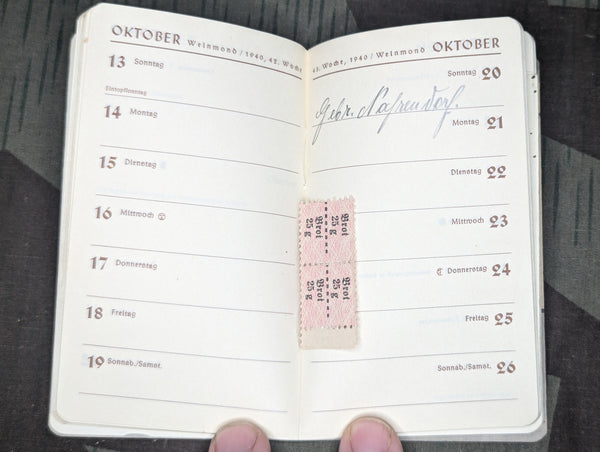 OKTOBER Weinmond / 1940, 42. Woche
13 Sonntag
Eintopfsonntag
14 Montag
15 Dienstag
16 Mittwoch
17 Donnerstag
18 Freitag
19 Sonnab./Samst.
43. Woche, 1940 / Weinmond OKTOBER
Sonntag 20
Gebr.
Montag 21
Dienstag 22
Mittwoch 23
Donnerstag 24
Freitag 25
Sonnab./Samst. 26
Brot
25 g
Brot
25 g
Brot
25 g
Brot
25 g